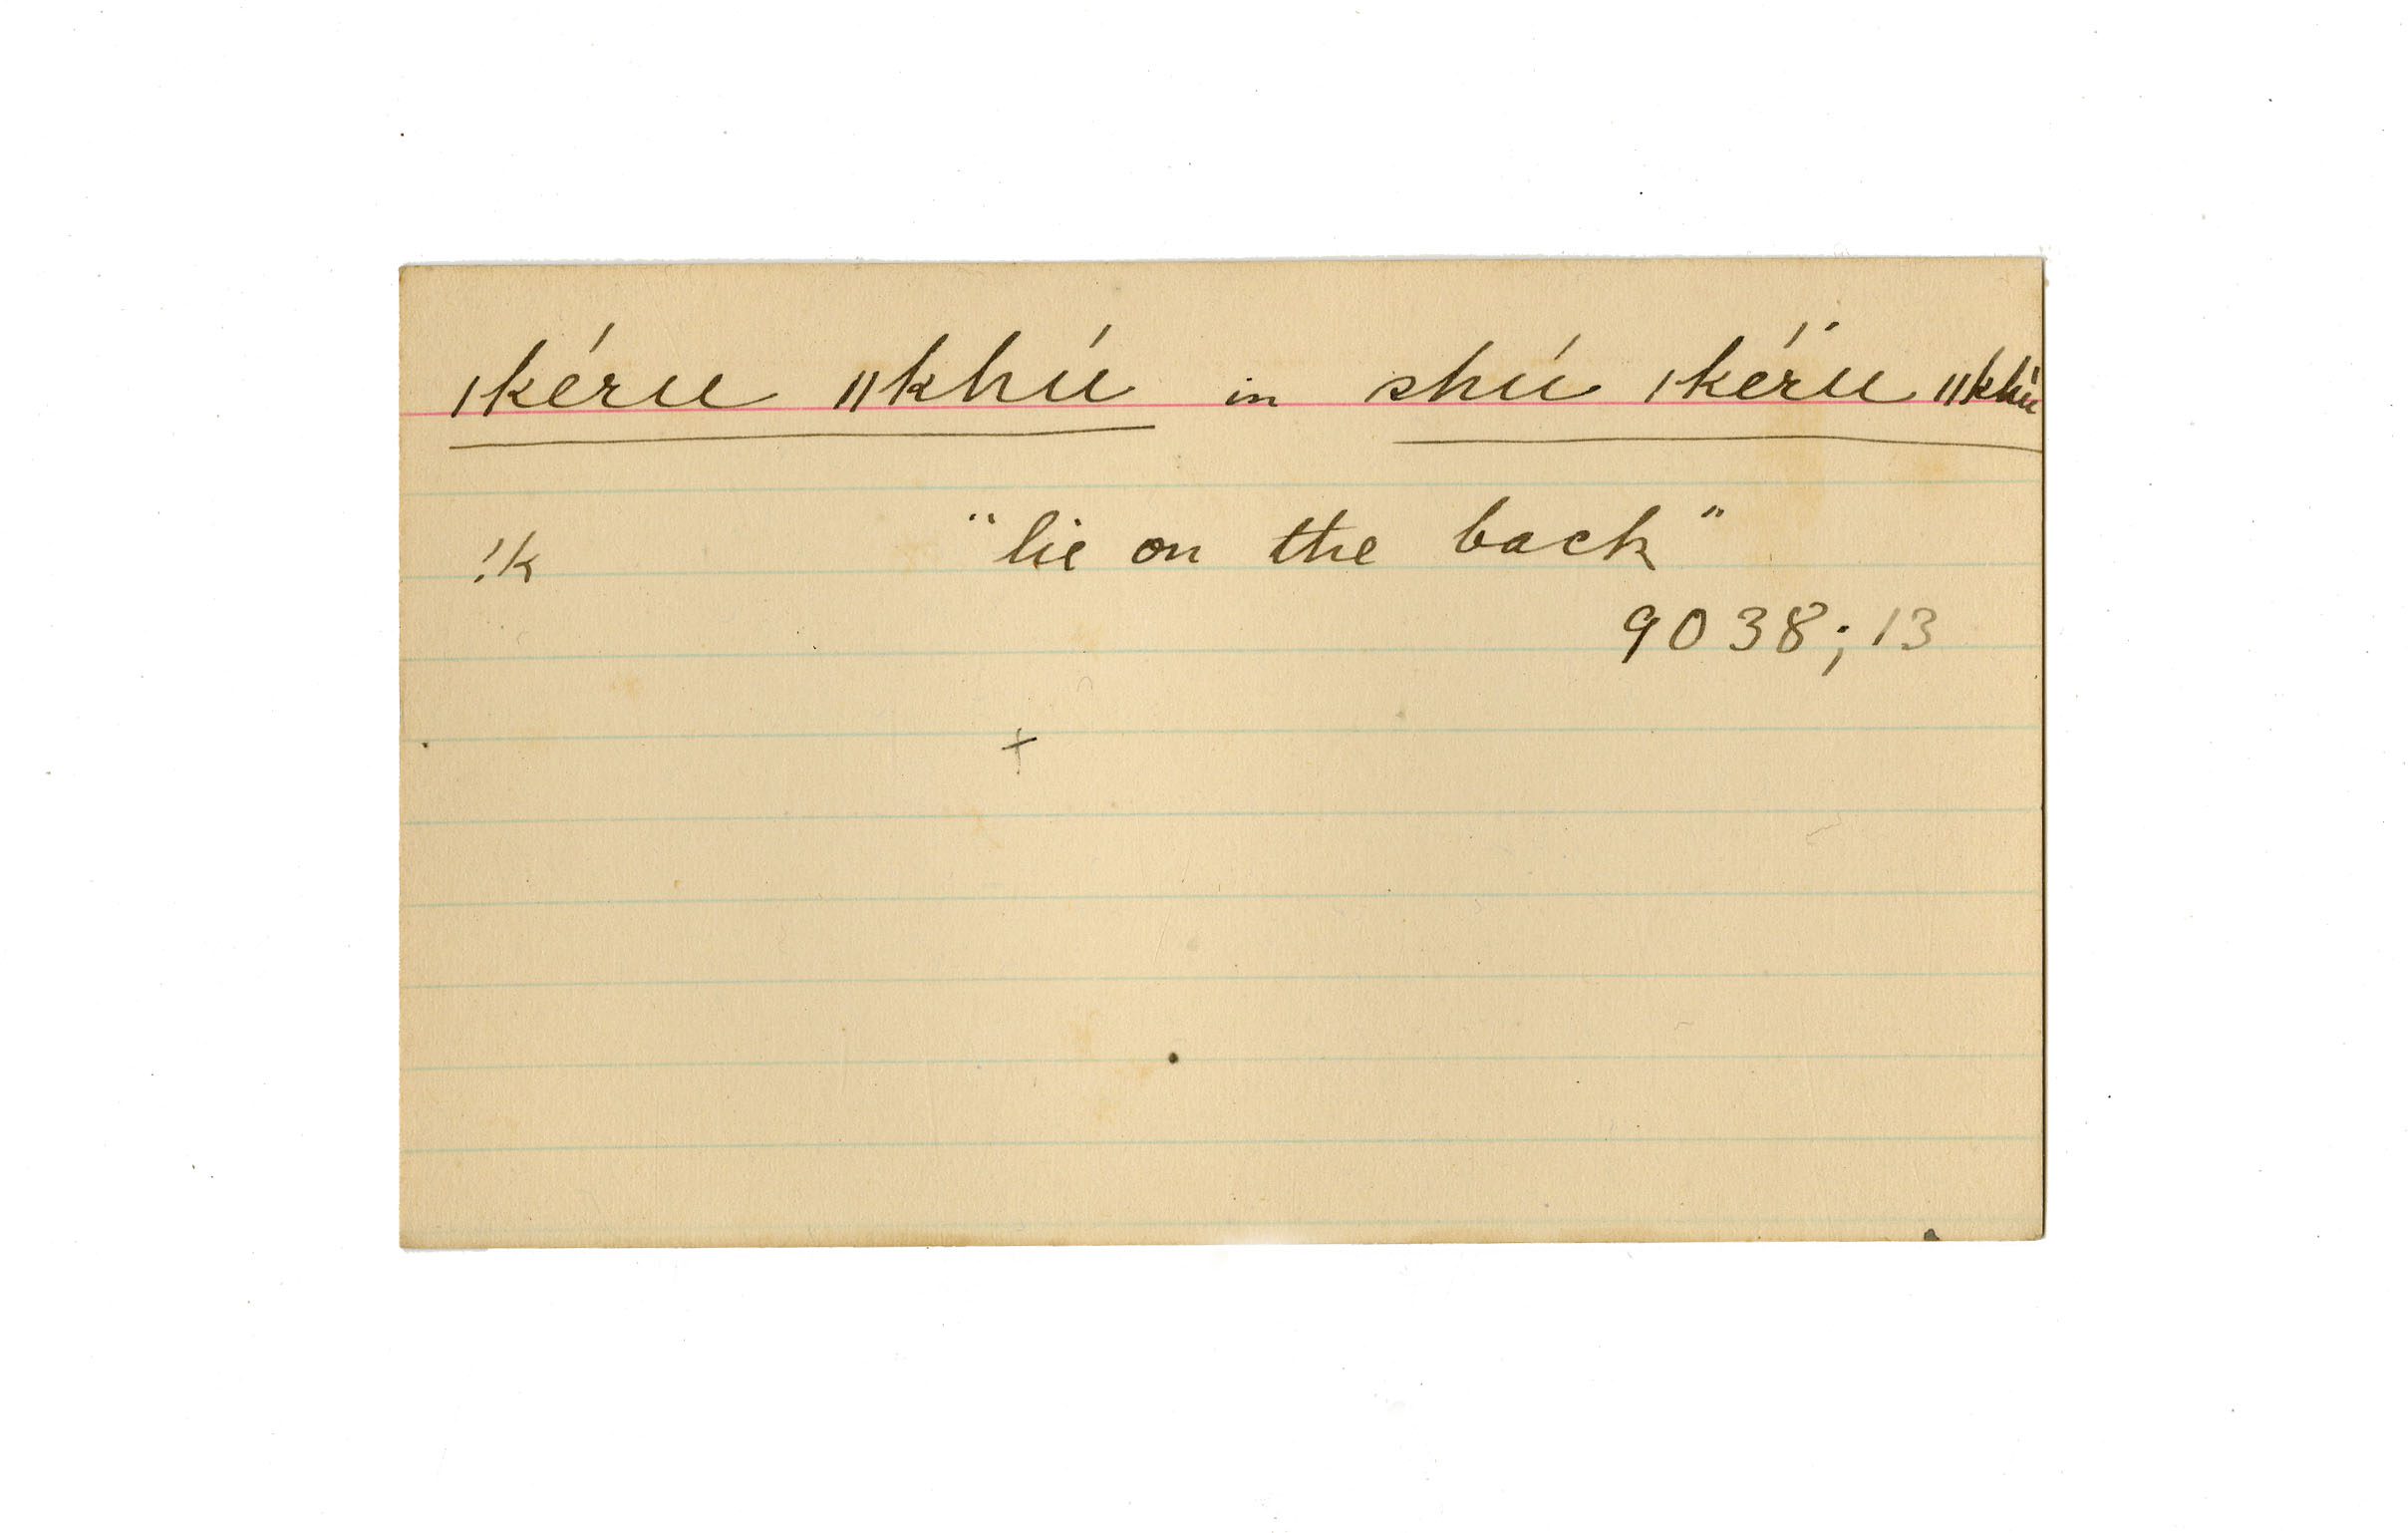 ǀkéru ǁkhú in shú ǀkérú ǁkhú
!k "lie on the back"
9038; 13
+